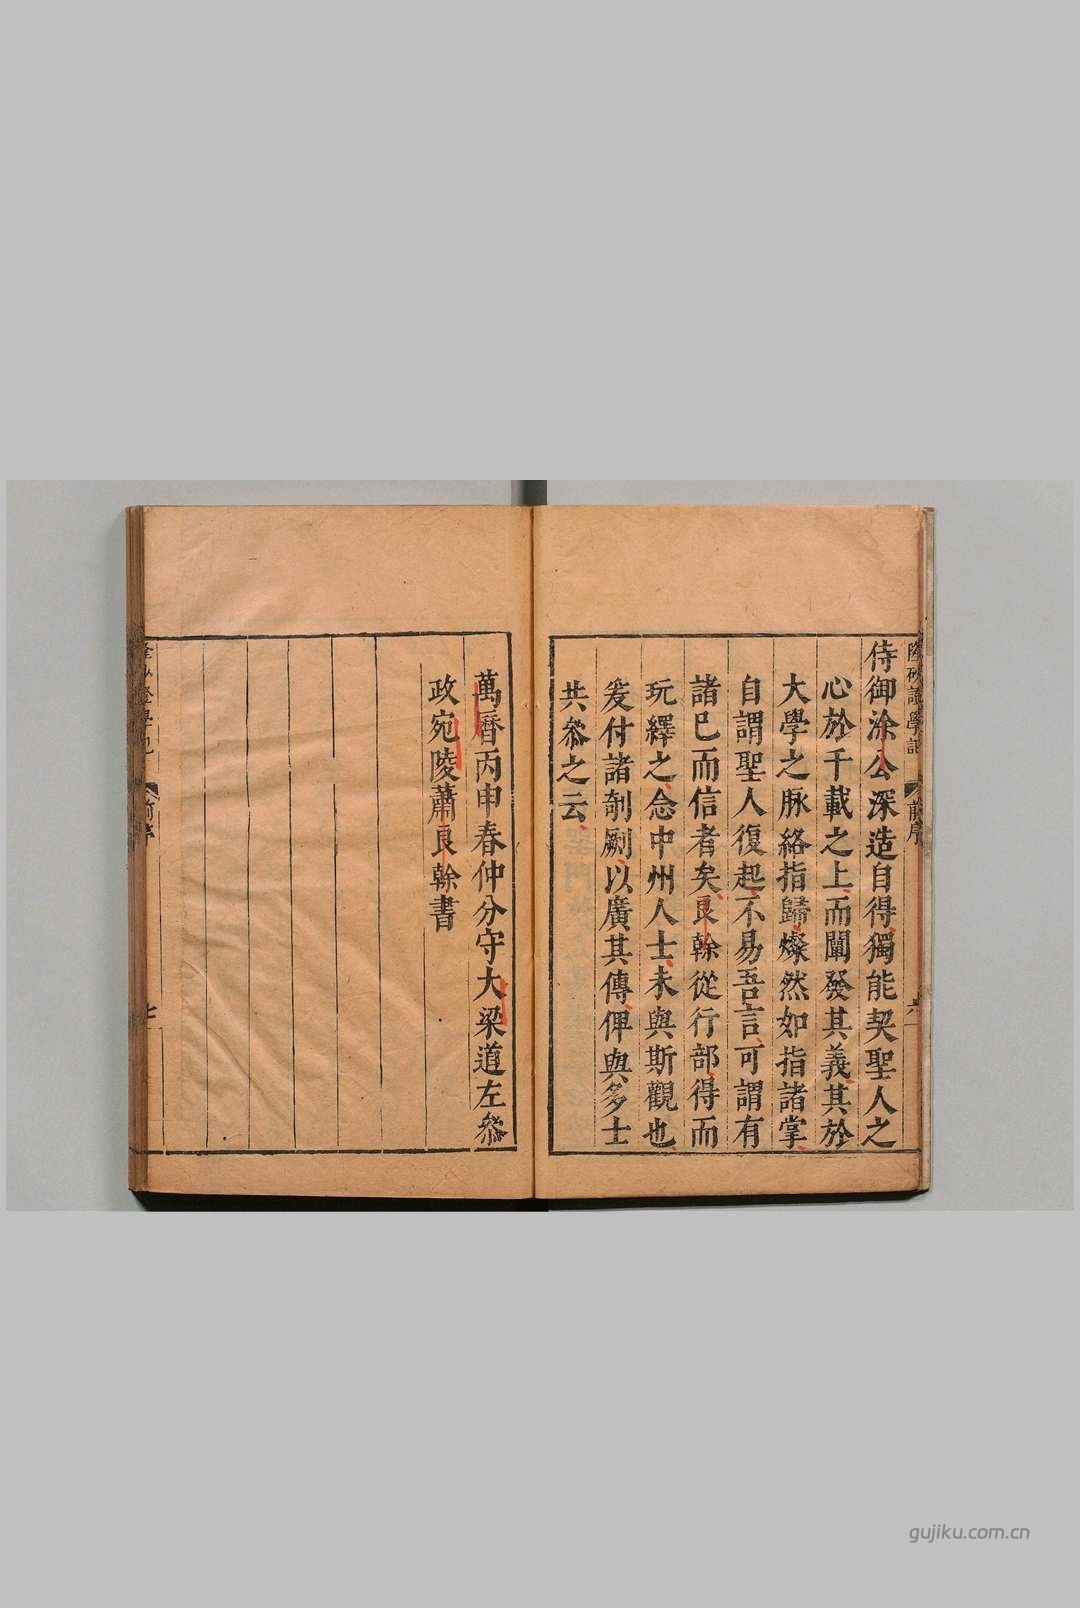 隆砂證學記
前序
六
侍御涂公深造自得獨能契聖人之
心於千載之上而闡發其義其於
大學之脉絡指歸燦然如指諸掌
自謂聖人復起不易吾言可謂有
諸巳而信者矣良榦從行部得而
玩繹之念中州人士未與斯觀也
爰付諸剞劂以廣其傳俾與多士
共叅之云
萬曆丙申春仲分守大梁道左叅
政宛陵蕭良榦書
前序
七
gujiku.com.cn